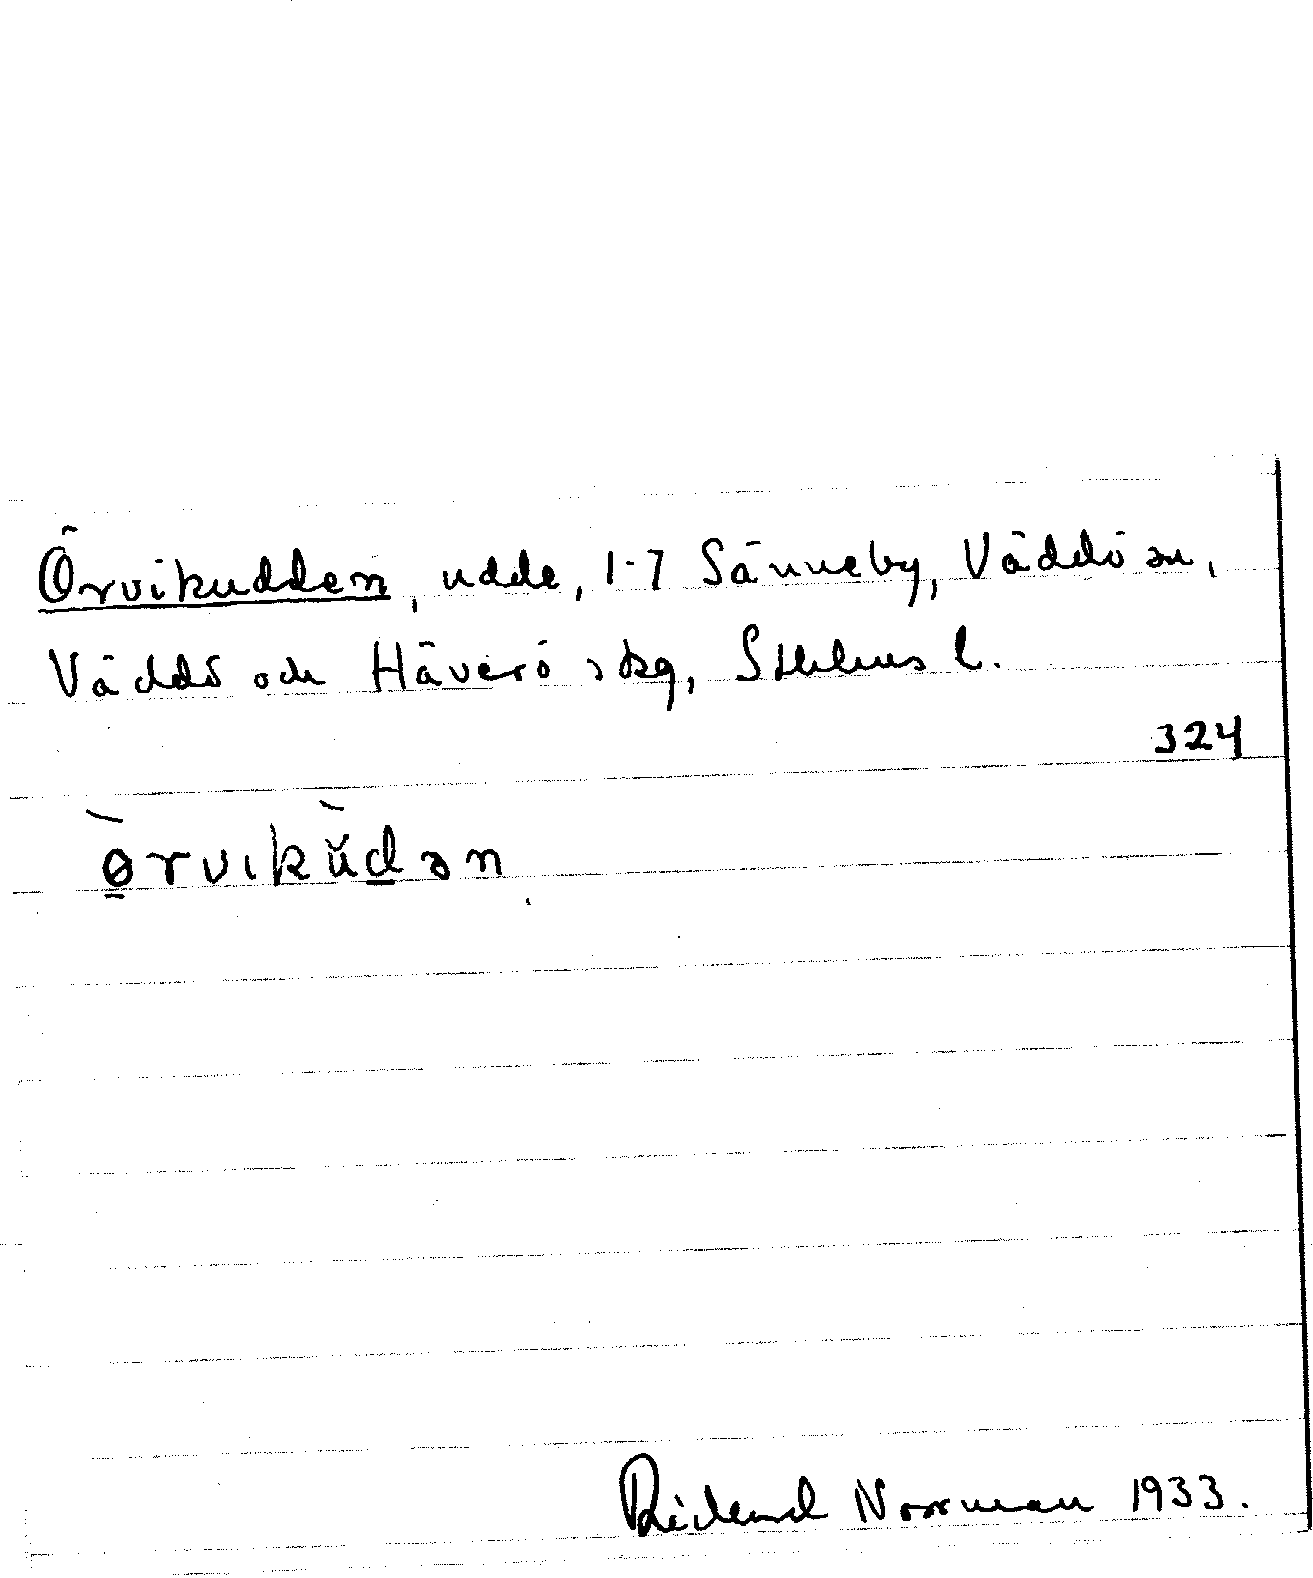 Örvikudden, udde, 1-7 Sänneby, Väddö sn,
Väddö och Häverö skg, Sthlms l.
324
ørvikŭdən
Norrman 1933.